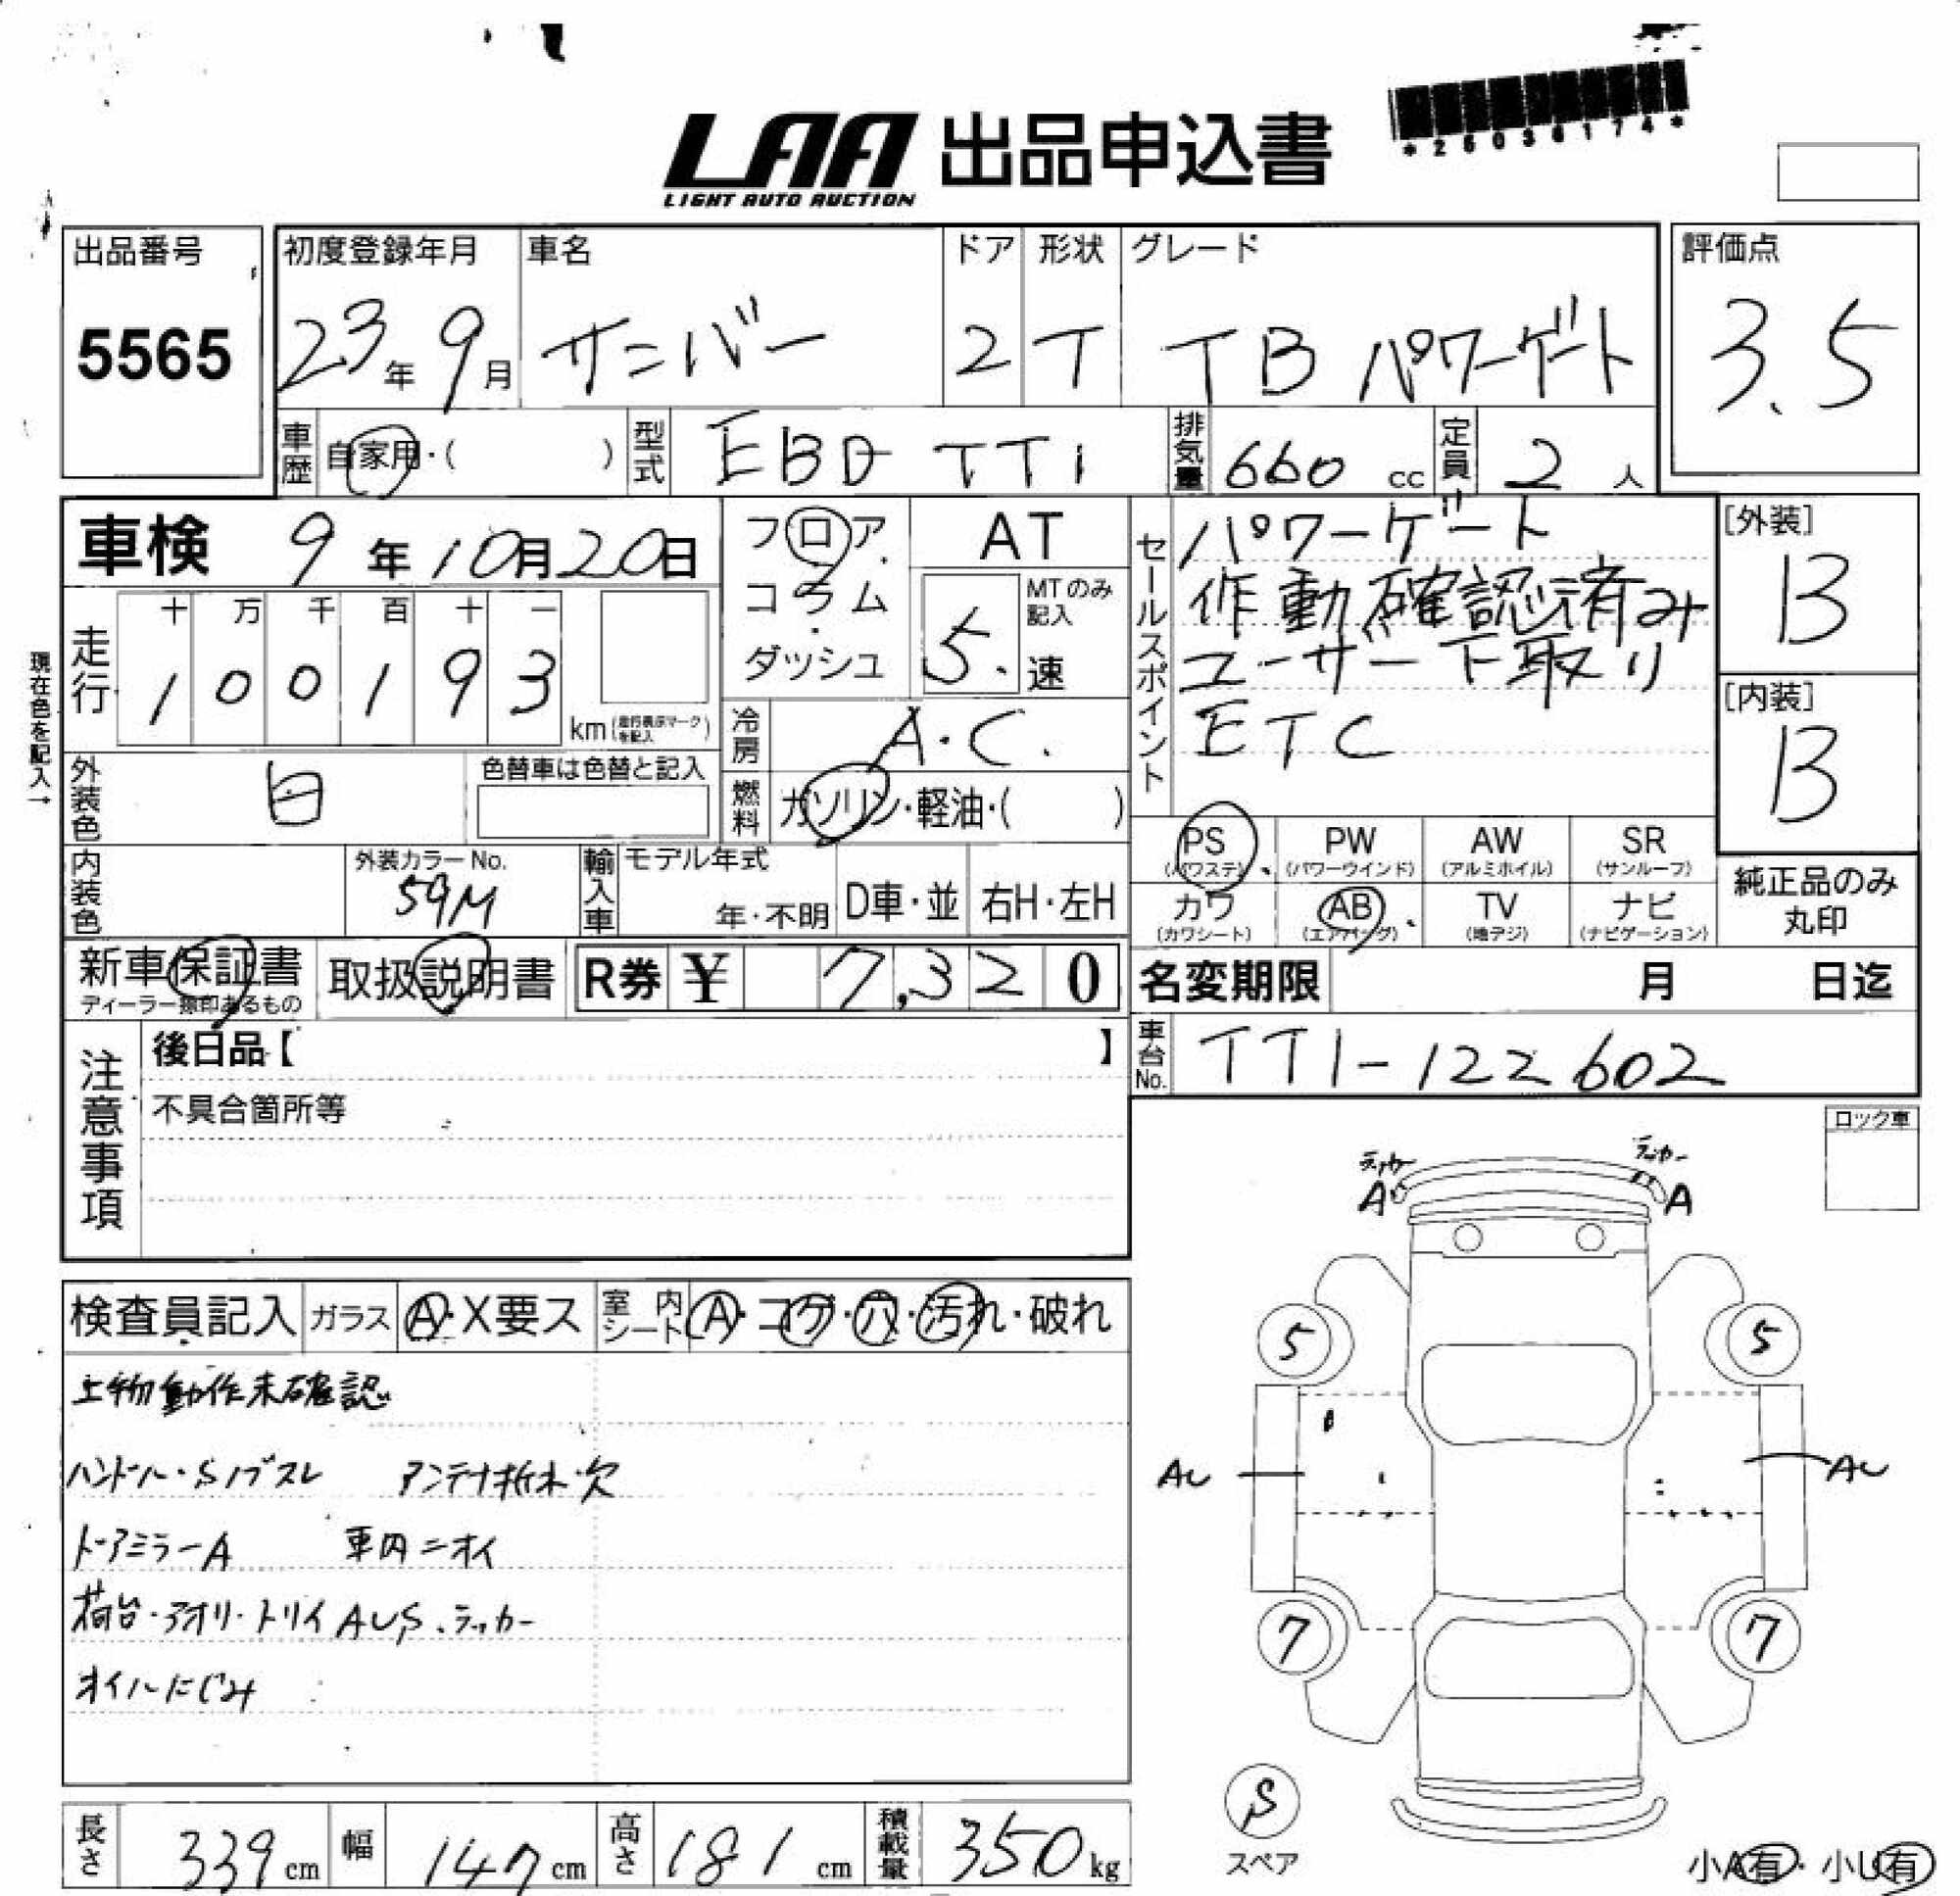 *25036174*
LAA 出品申込書
LIGHT AUTO AUCTION
出品番号
5565
初度登録年月
23年9月
車名
サンバー
ドア
2
形状
T
グレード
TB パワーゲート
評価点
3.5
車歴
自家用・( )
型式
EBD TT1
排気量
660 cc
定員
2 人
車検 9年10月20日
フロア・コラム・ダッシュ
AT
MTのみ記入
5.速
セールスポイント
パワーゲート
作動確認済み
ユーザー下取り
ETC
[外装]
B
[内装]
B
現在色を記入→
走行
十 万 千 百 十 一
1 0 0 1 9 3
km(走行表示マークを記入)
冷房
A・C.
燃料
ガソリン・軽油・( )
外装色
白
色替車は色替と記入
内装色
外装カラーNo.
59M
輸入車
モデル年式
年・不明
D車・並
右H・左H
PS
(パワステ)
PW
(パワーウインド)
AW
(アルミホイル)
SR
(サンルーフ)
カワ
(カワシート)
AB
(エアバッグ)
TV
(地デジ)
ナビ
(ナビゲーション)
純正品のみ
丸印
新車保証書
ディーラー捺印あるもの
取扱説明書
R券 ¥ 7,320
名変期限 月 日迄
車台No.
TT1-122602
注意事項
後日品【 】
不具合箇所等
ロック車
ラッカー
A
ラッカー
A
検査員記入
ガラス
A・X要ス
室内シート
A・コゲ・穴・汚れ・破れ
上物動作未確認
ハンドル・Sノブスレ アンテナ折れ・欠
ドアミラーA 車内ニオイ
荷台・アオリ・トリイAUS、ラッカー
オイルにじみ
5
5
AU
AU
7
7
S
スペア
小A有・小U有
長さ
339 cm
幅
147 cm
高さ
181 cm
積載量
350 kg